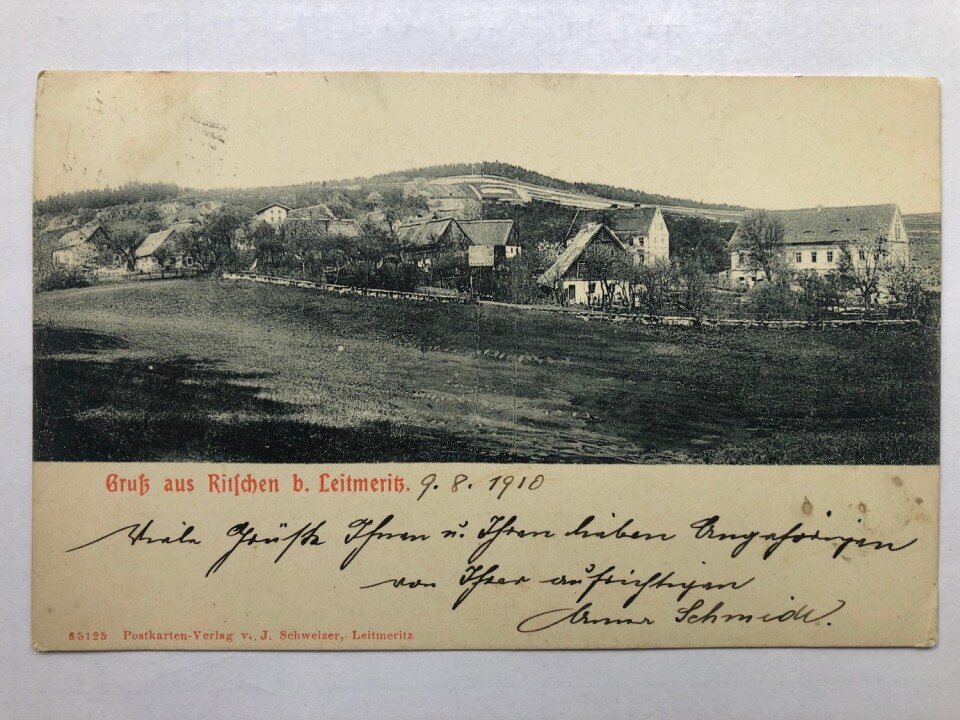 Gruß aus Ritschen b. Leitmeritz. 9. 8. 1910
Viele Grüße Ihnen u. Ihren lieben Angehörigen
von Ihrer aufrichtigen
Anna Schmidt.
85125 Postkarten-Verlag v. J. Schweizer, Leitmeritz